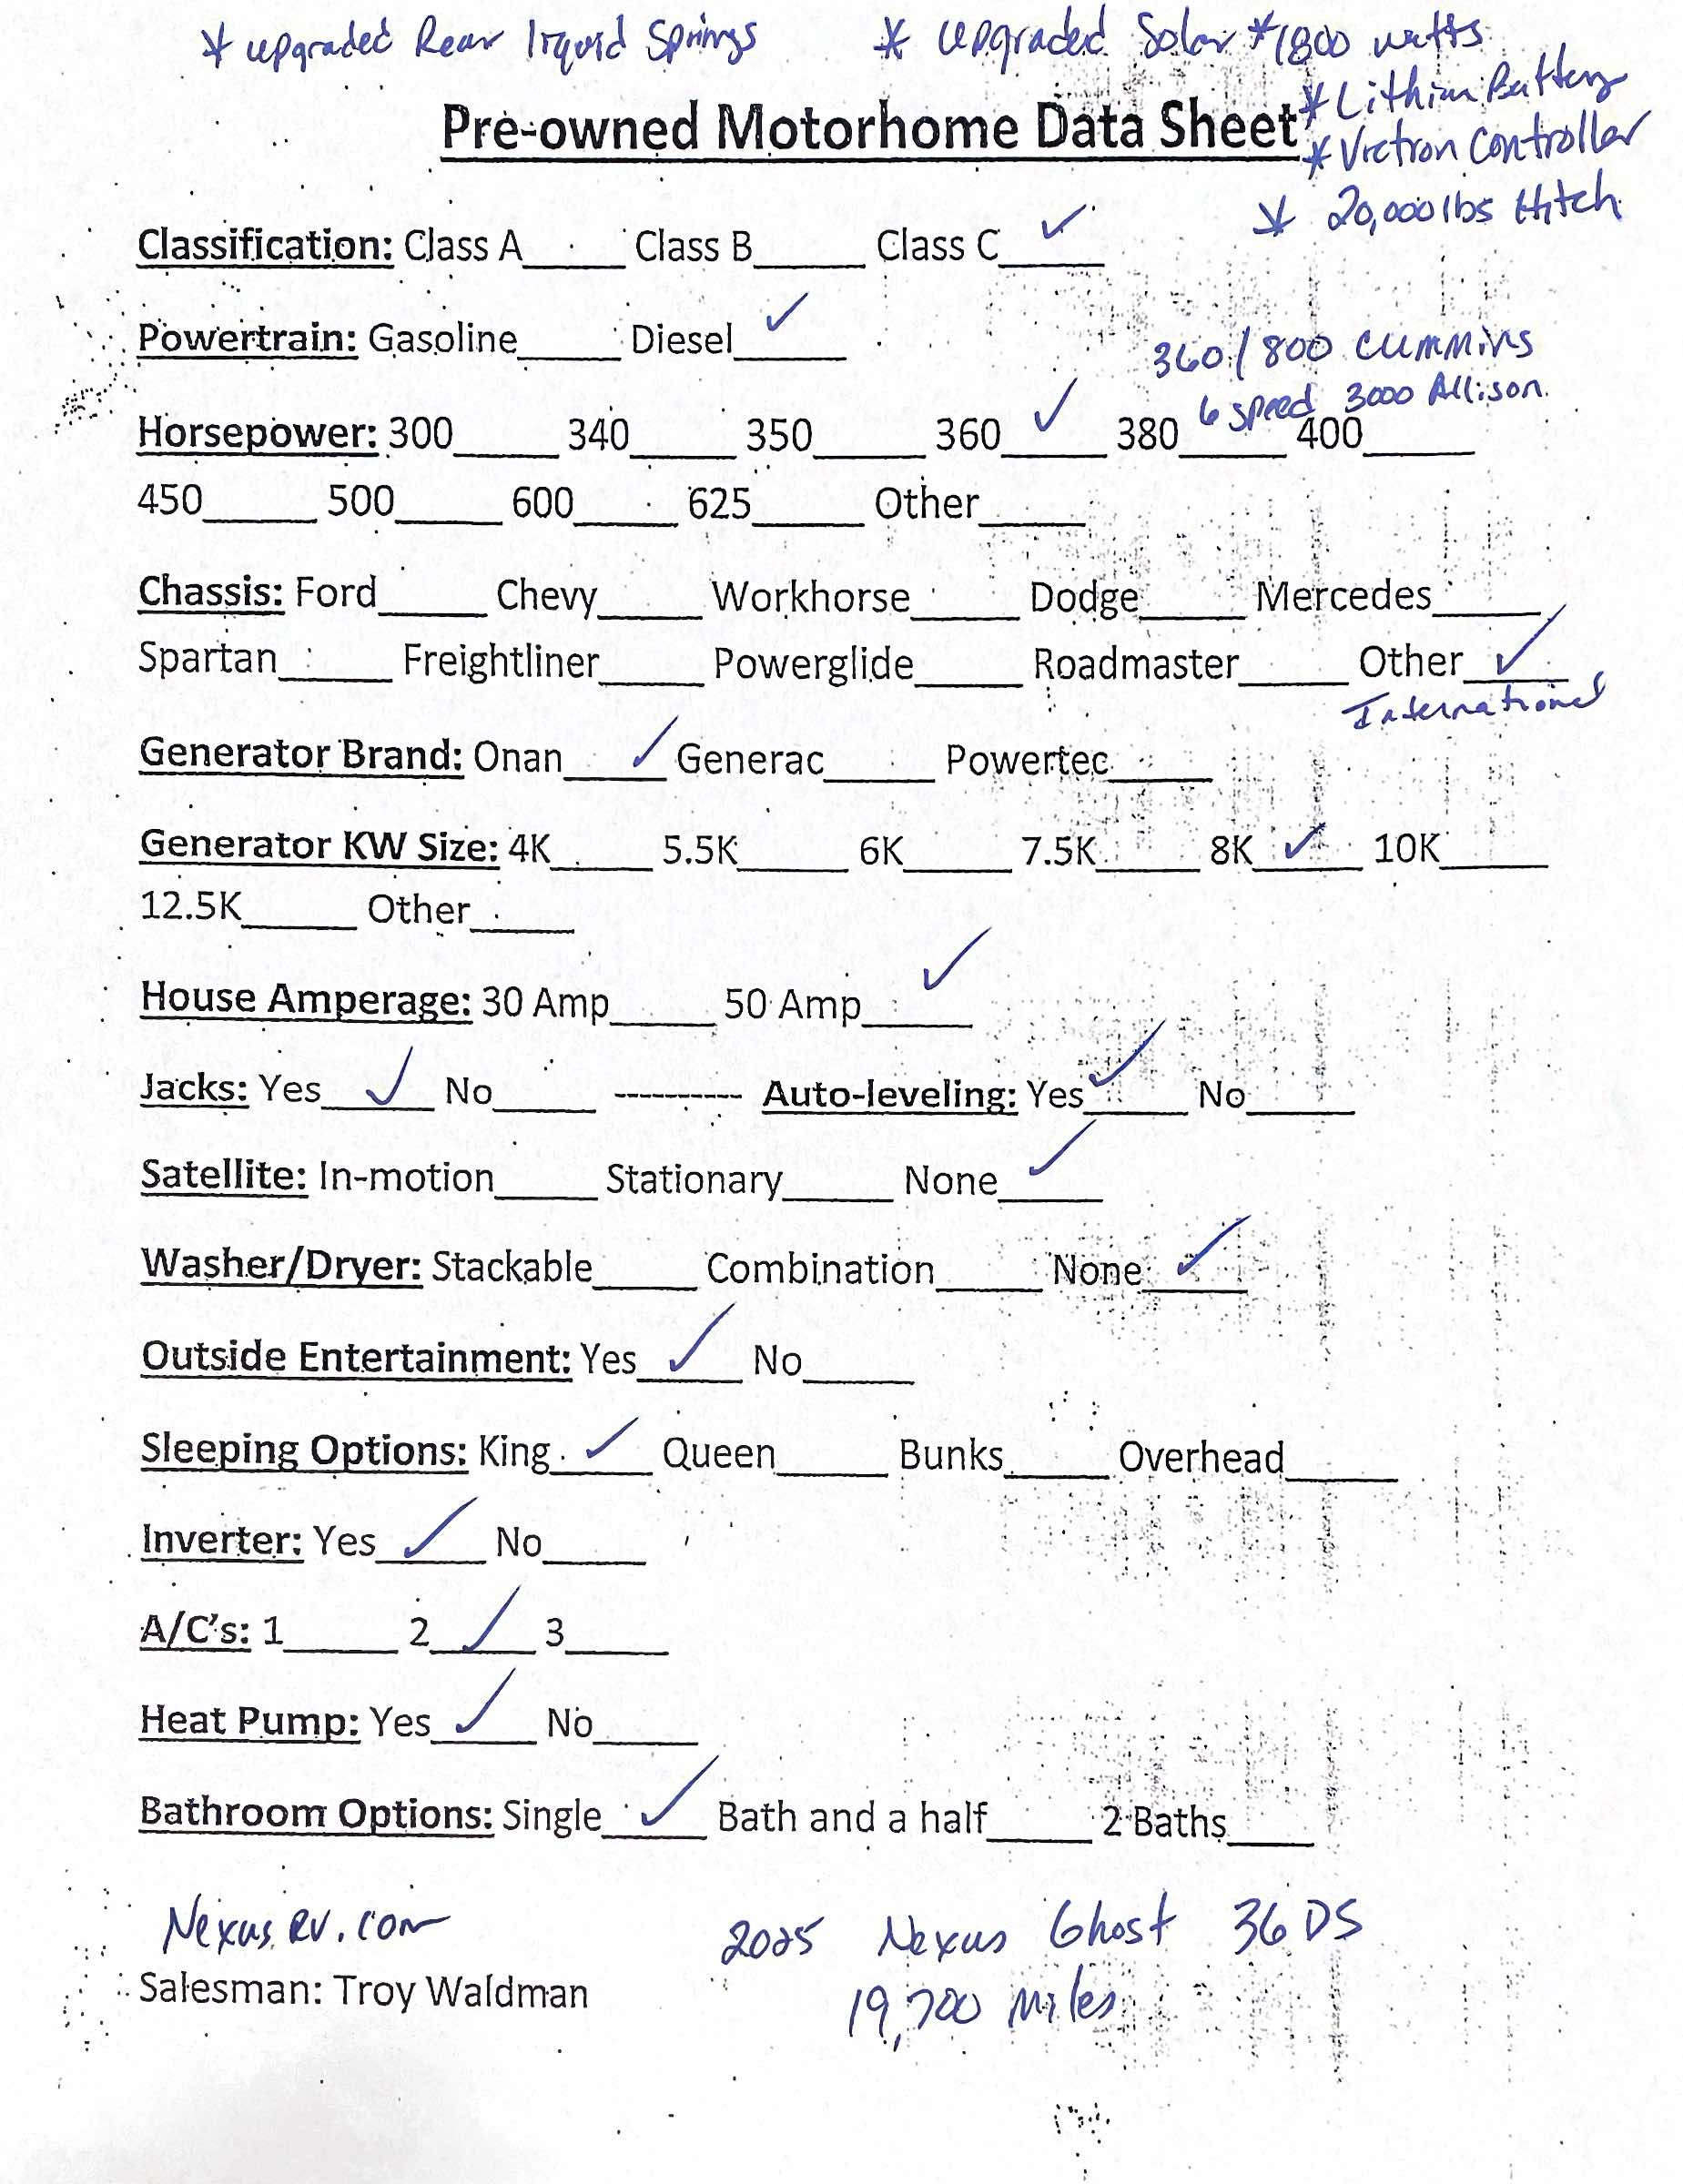 * upgraded Rear liquid Springs * upgraded Solar *1800 watts
* Lithium Battery
Pre-owned Motorhome Data Sheet
* Victron Controller
* 20,000 lbs Hitch
Classification: Class A_____ Class B_____ Class C__✓__
Powertrain: Gasoline_____ Diesel__✓__
360/800 Cummins
6 speed 3000 Allison
Horsepower: 300_____ 340_____ 350_____ 360__✓__ 380_____ 400_____
450_____ 500_____ 600_____ 625_____ Other_____
Chassis: Ford_____ Chevy_____ Workhorse_____ Dodge_____ Mercedes_____
Spartan_____ Freightliner_____ Powerglide_____ Roadmaster_____ Other__✓__
International
Generator Brand: Onan__✓__ Generac_____ Powertec_____
Generator KW Size: 4K_____ 5.5K_____ 6K_____ 7.5K_____ 8K__✓__ 10K_____
12.5K_____ Other_____
House Amperage: 30 Amp_____ 50 Amp__✓__
Jacks: Yes__✓__ No_____ ---------- Auto-leveling: Yes__✓__ No_____
Satellite: In-motion_____ Stationary_____ None__✓__
Washer/Dryer: Stackable_____ Combination_____ None__✓__
Outside Entertainment: Yes__✓__ No_____
Sleeping Options: King__✓__ Queen_____ Bunks_____ Overhead_____
Inverter: Yes__✓__ No_____
A/C's: 1_____ 2__✓__ 3_____
Heat Pump: Yes__✓__ No_____
Bathroom Options: Single__✓__ Bath and a half_____ 2 Baths____
NexusRV.com 2025 Nexus Ghost 36DS
Salesman: Troy Waldman 19,700 Miles